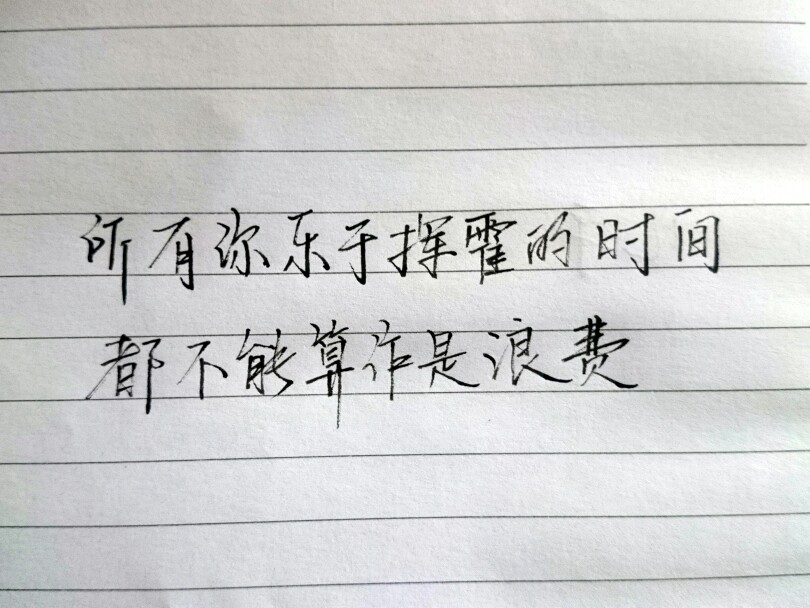 所有你乐于挥霍的时间
都不能算作是浪费